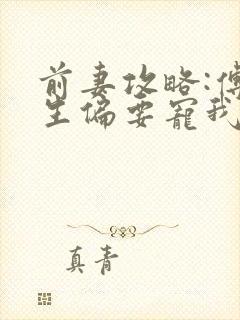 前妻攻略:傅
生偏要宠我
真青